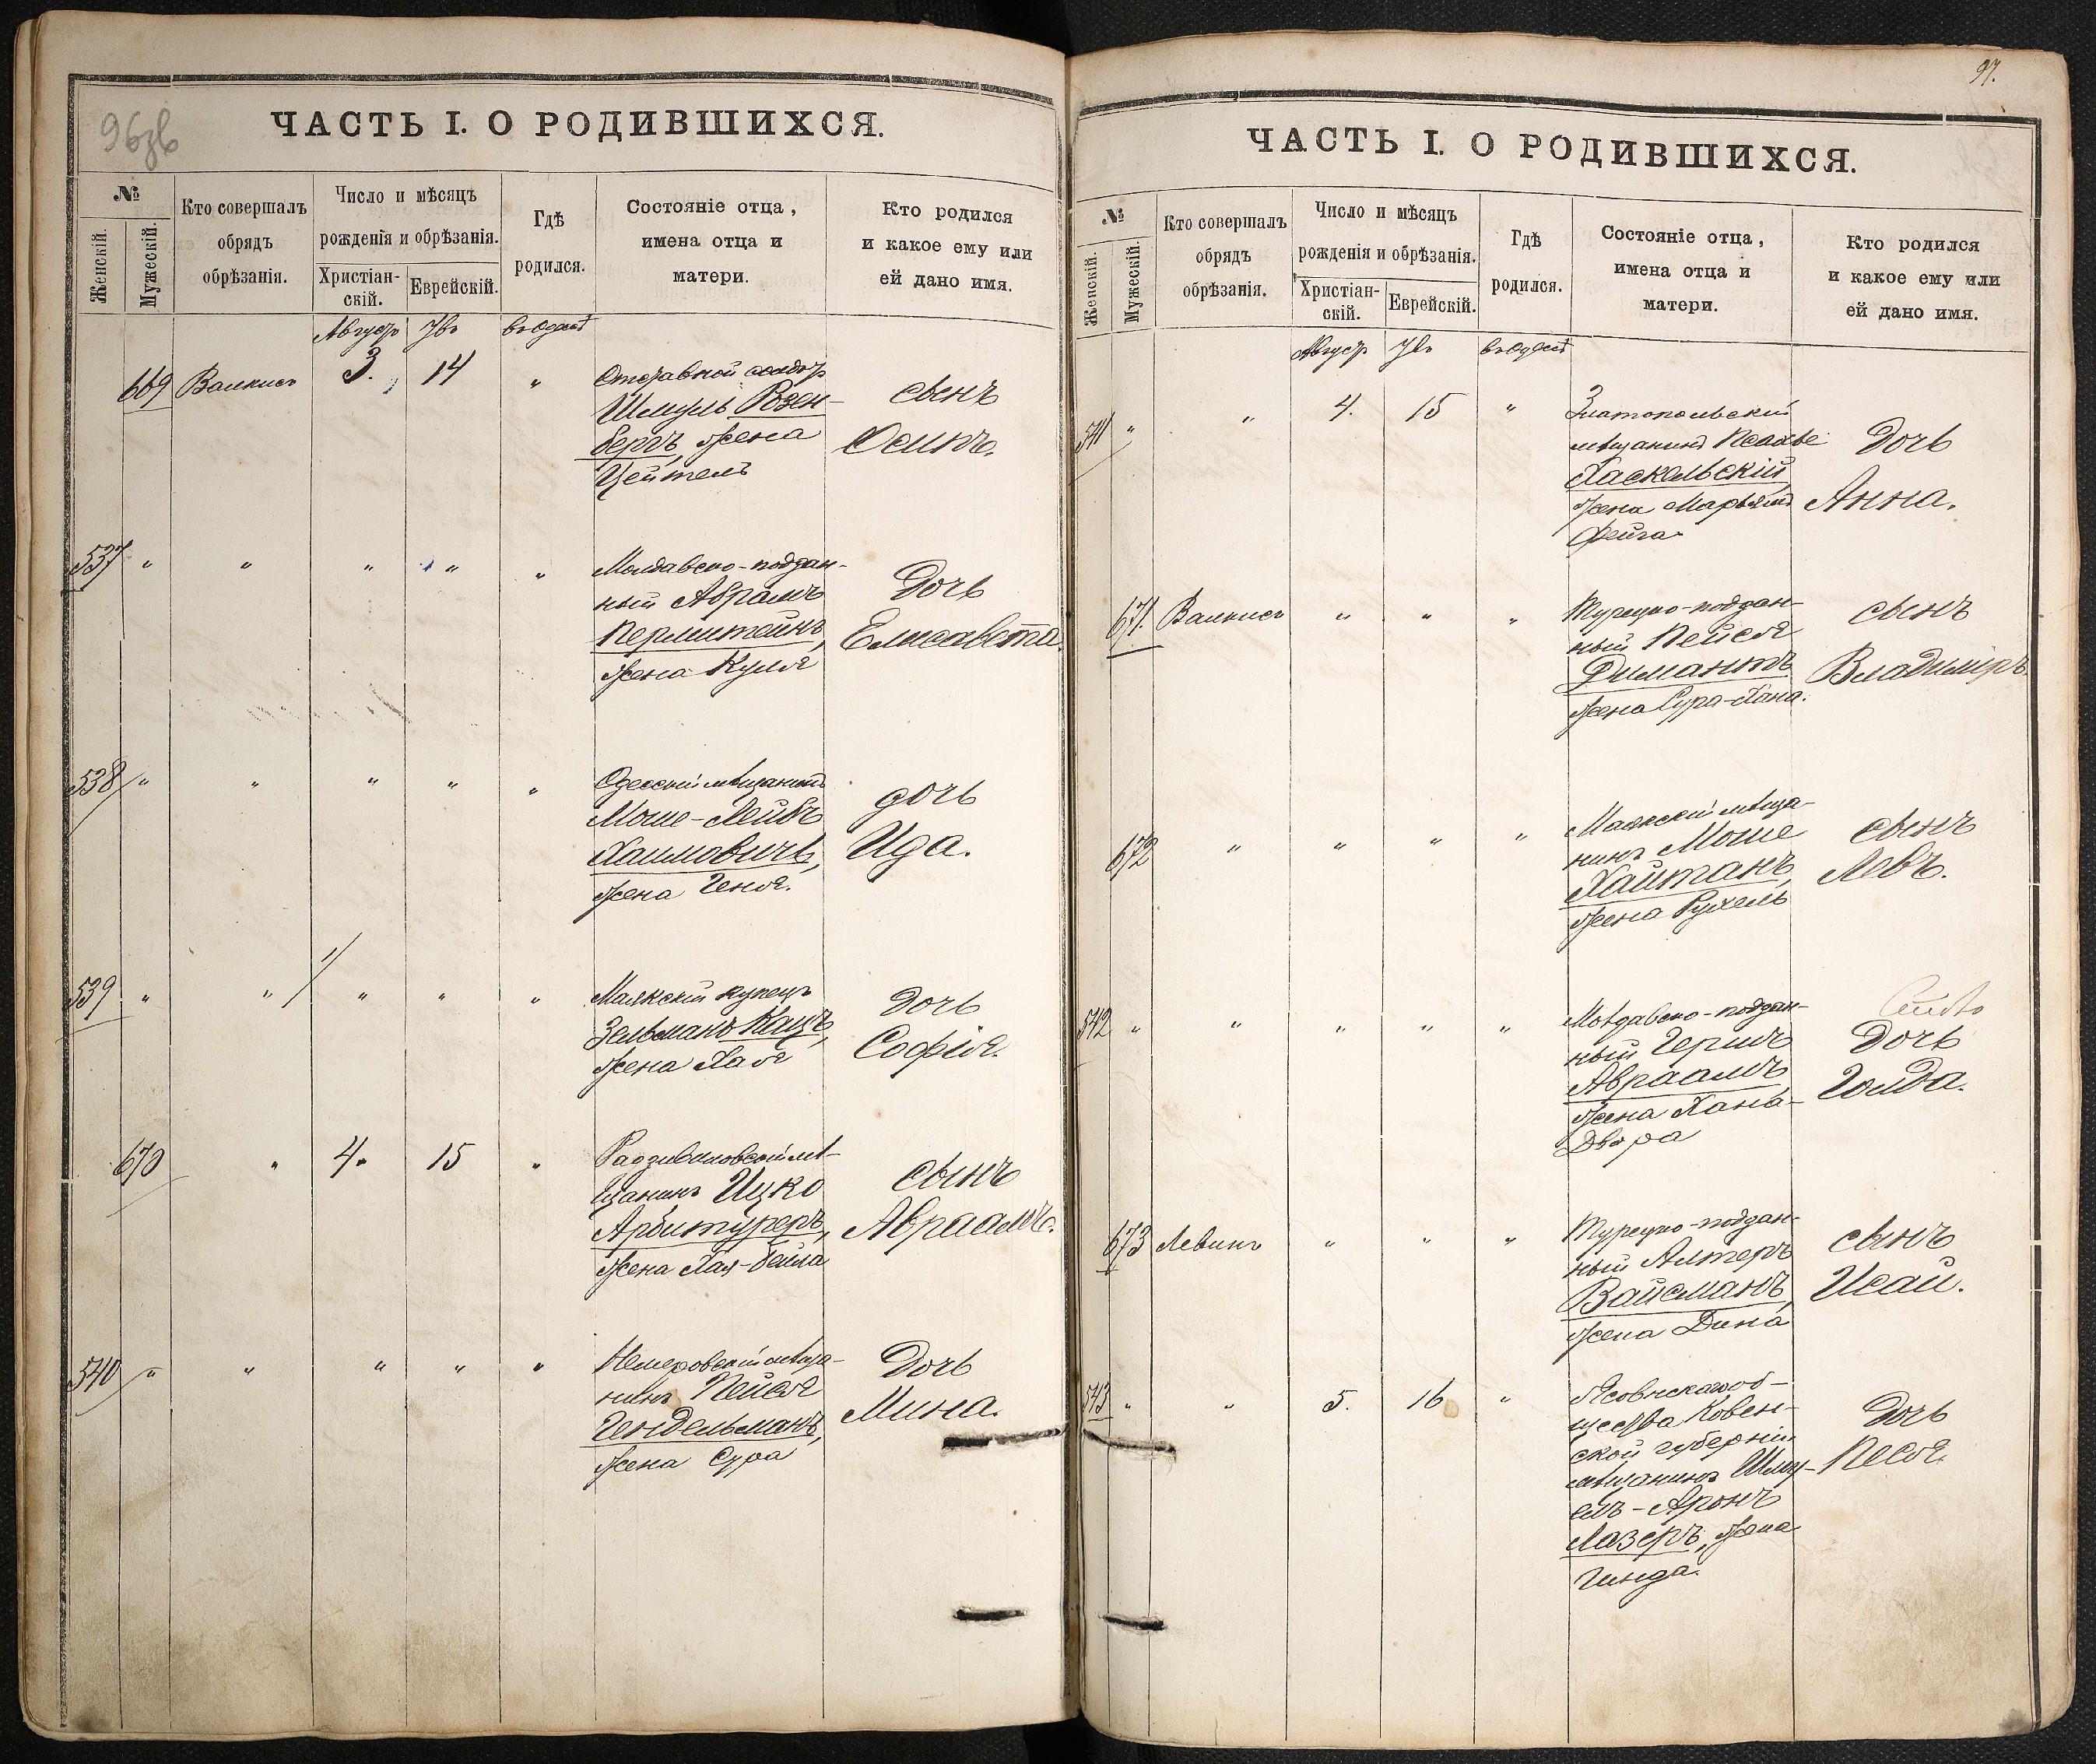 96зв
ЧАСТЬ I. О РОДИВШИХСЯ.
№
Женскій.
Мужескій.
Кто совершалъ
обрядъ
обрѣзанія.
Число и мѣсяцъ
рожденія и обрѣзанія.
Христіан-
скій.
Еврейскій.
Гдѣ
родился.
Состояніе отца,
имена отца и
матери.
Кто родился
и какое ему или
ей дано имя.
Августъ
въ Одессѣ
669
3.
14
"
Отставной солдатъ
Шмуль Розен-
бергъ, жена
Цейтель
сынъ
Осипъ.
537 " " " " "
Молдавско-поддан-
ный Абрамъ
Перлштейнъ,
жена Куля
Дочь
Елисавета.
538 " " " " "
Одесскій мѣщанинъ
Моше-Лейбъ
Хаимовичъ,
жена Геня.
дочь
Ида.
539 " " " " "
Маякскій купецъ
Зельманъ Кацъ,
жена Хая
Дочь
Софія.
670 " 4. 15 "
Радзивиловскій мѣ-
щанинъ Ицко
Арбитуреръ,
жена Хая-Бейла
сынъ
Авраамъ.
540 " " " " "
Немеровскій мѣща-
нинъ Пейся
Гендельманъ,
жена Сура
Дочь
Мина.
97.
ЧАСТЬ I. О РОДИВШИХСЯ.
№
Женскій.
Мужескій.
Кто совершалъ
обрядъ
обрѣзанія.
Число и мѣсяцъ
рожденія и обрѣзанія.
Христіан-
скій.
Еврейскій.
Гдѣ
родился.
Состояніе отца,
имена отца и
матери.
Кто родился
и какое ему или
ей дано имя.
Августъ
въ Одессѣ
541 " " 4. 15 "
Златопольскій
мѣщанинъ
Хаскельскій,
жена Марьямъ
Фейга
Дочь
Анна.
671. " " "
Турецко-поддан-
ный Пейся
Димантъ
жена Сура-Хана.
сынъ
Владиміръ.
672 " " " "
Маякскій мѣща-
нинъ Моше
Хайтанъ,
жена Рухель
сынъ
Левъ.
542 " " " " "
Молдавско-поддан-
ный Гершъ
Авраамъ,
жена Хана-
Двора
Дочь
Голда.
673 Левинъ " " "
Турецко-поддан-
ный Алтеръ
Вайсманъ,
жена Дина
сынъ
Исай.
543 " " 5. 16 "
об-
щества Ковен-
ской губерніи
мѣщанинъ Шму-
ель-Аронъ
Лазеръ, жена
Гинда.
Дочь
Песя.